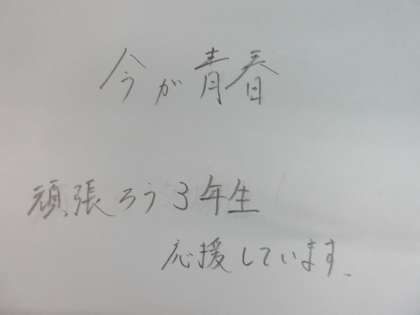 今が青春
頑張ろう3年生
応援しています.